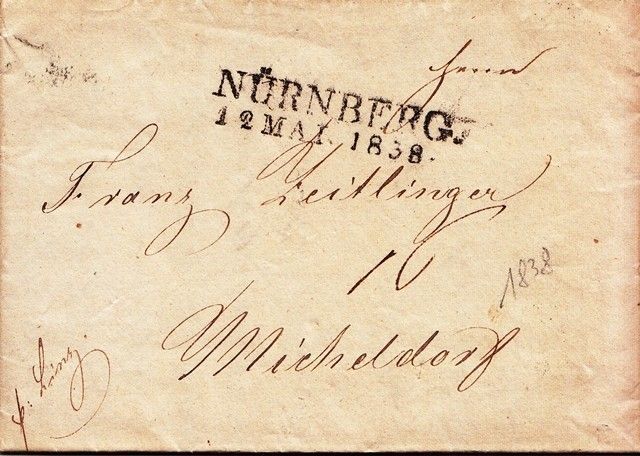 Herrn
NÜRNBERG.
12 MAI. 1838.
Franz Zeitlinger
16
1838
Micheldorf
p: Linz